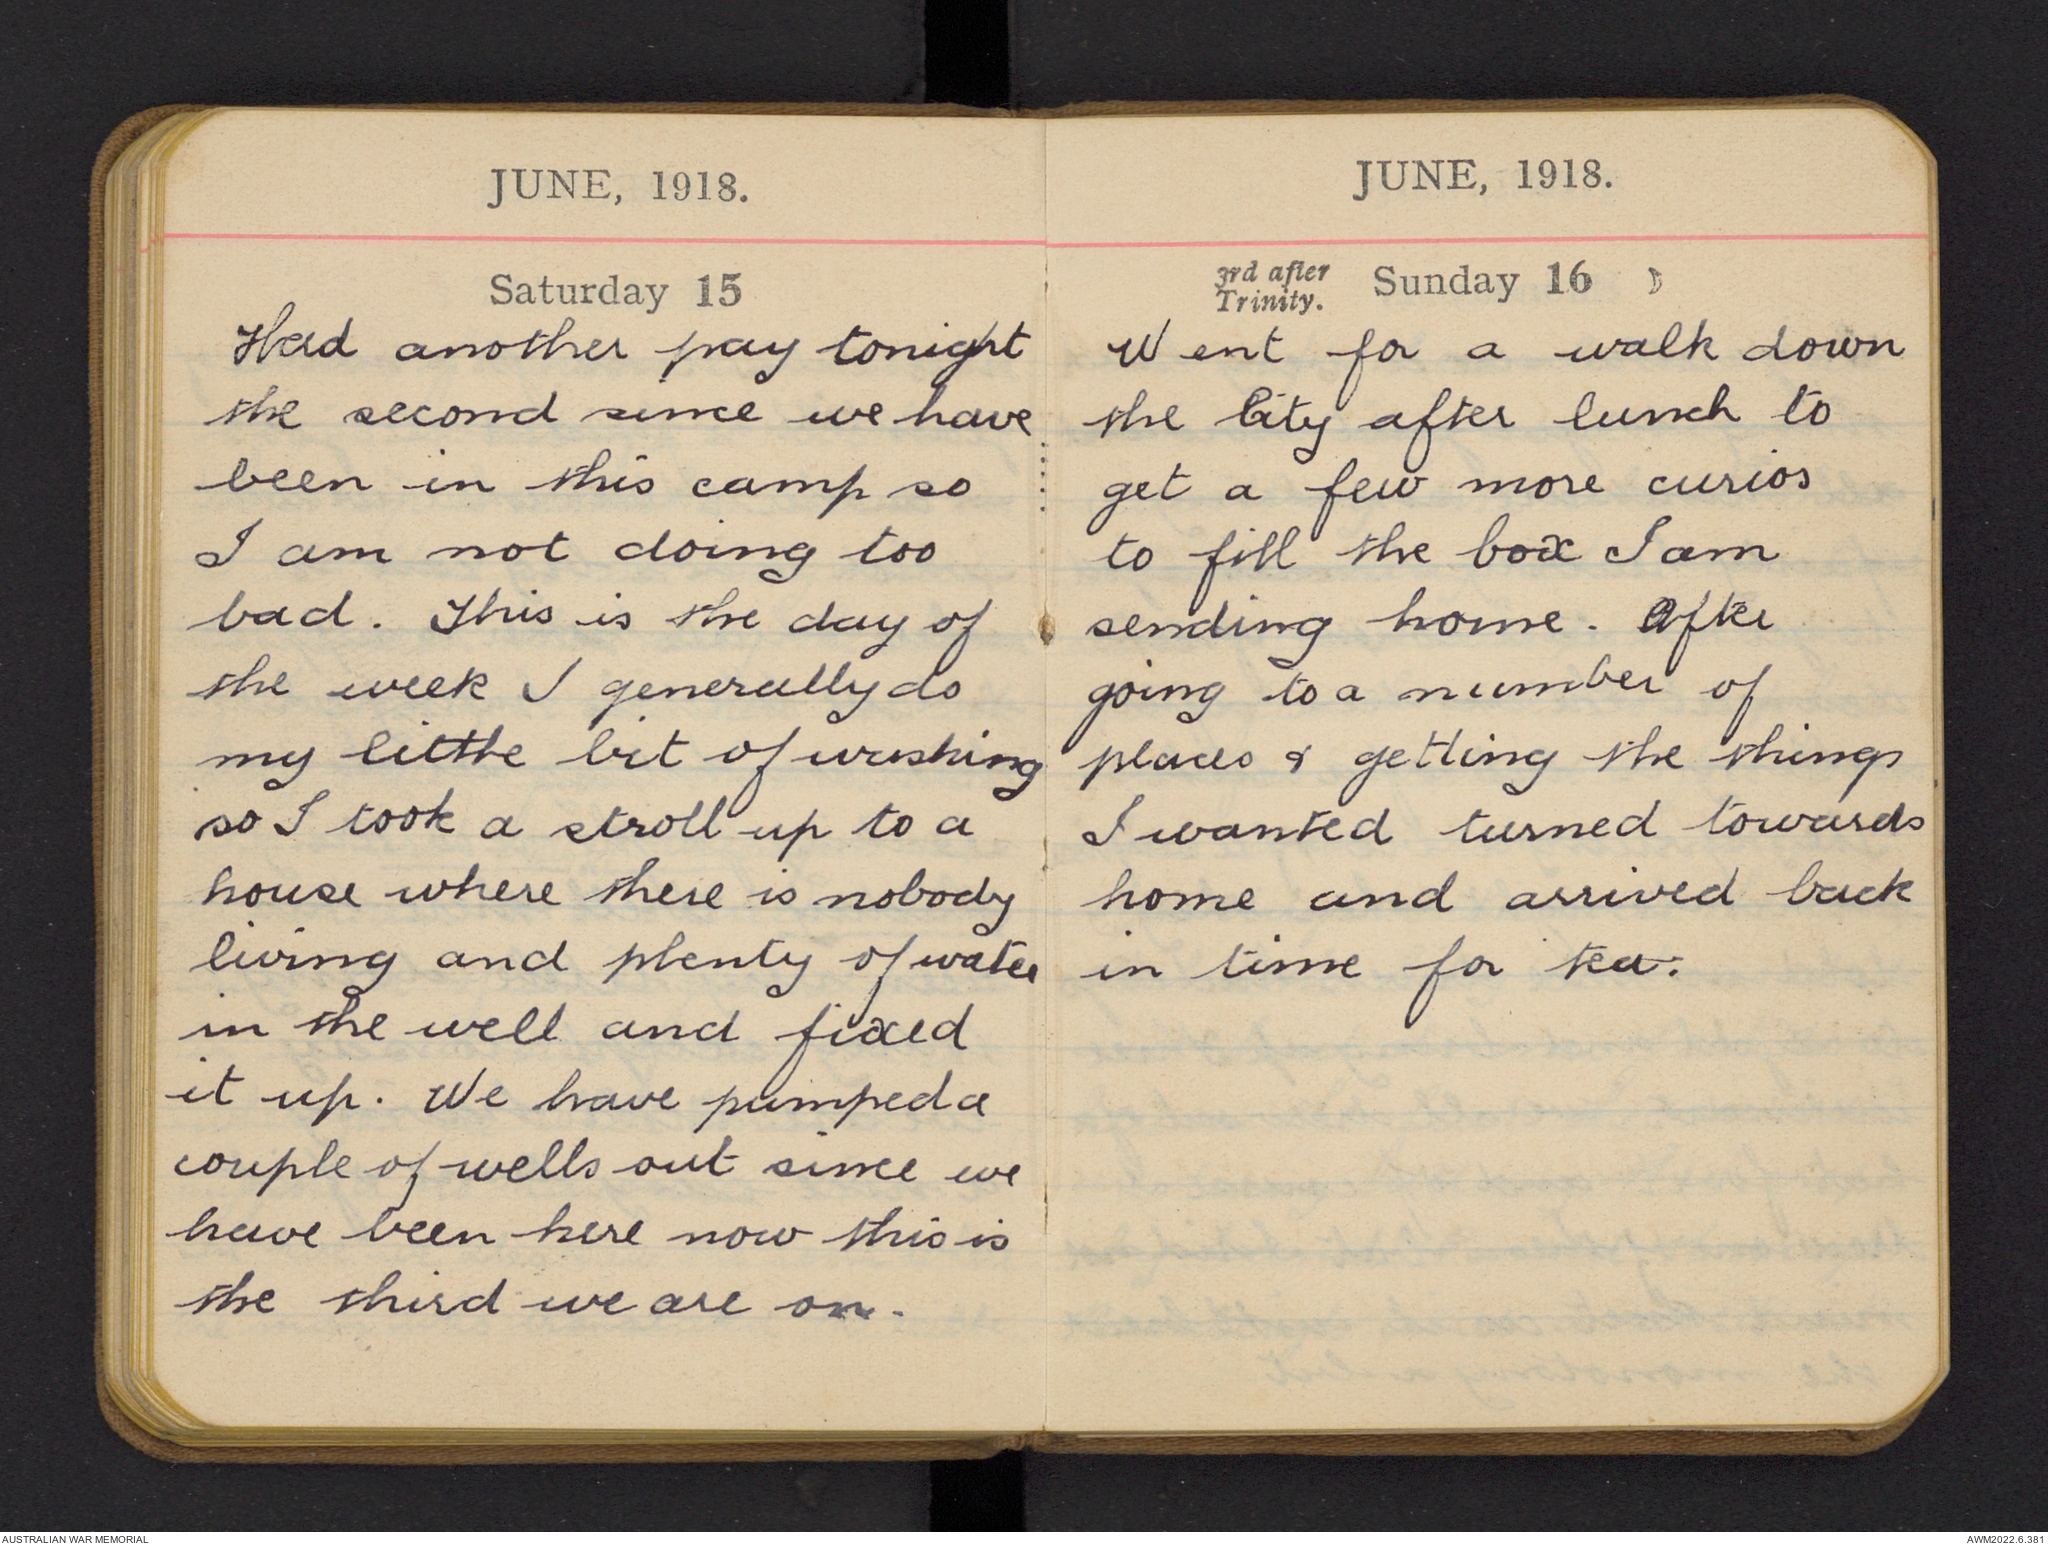 JUNE, 1918.
Saturday 15
Had another pay tonight
the second since we have
been in this camp so
I am not doing too
bad. This is the day of
the week I generally do
my little bit of washing
so I took a stroll up to a
house where there is nobody
living and plenty of water
in the well and fixed
it up. We have pumped a
couple of wells out since we
have been here now this is
the third we are on.
JUNE, 1918.
3rd after
Trinity.
Sunday 16
Went for a walk down
the City after lunch to
get a few more curios
to fill the box I am
sending home. After
going to a number of
places & getting the things
I wanted turned towards
home and arrived back
in time for tea.
AUSTRALIAN WAR MEMORIAL
AWM2022.6.381